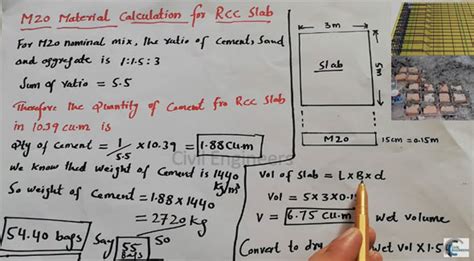 M20 Material Calculation for RCC Slab
For M20 nominal mix, the ratio of Cement, Sand
and aggregate is 1:1.5:3
Sum of ratio = 5.5
Therefore the Quantity of Cement fro RCC Slab
in 10.39 cu.m is
Qty of Cement = 1/5.5 x 10.39 = 1.88 Cu.m
we know that weight of Cement is 1440 kg/m³
So weight of Cement = 1.88 x 1440
= 2720 kg
54.40 bags Say 55 Bags So
3m
Slab
5m
M20
15cm = 0.15m
Civil Engineers
Vol of Slab = L x B x d
Vol = 5 x 3 x 0.1
V = 6.75 cu.m Wet volume
Convert to dry
Wet vol x 1.5